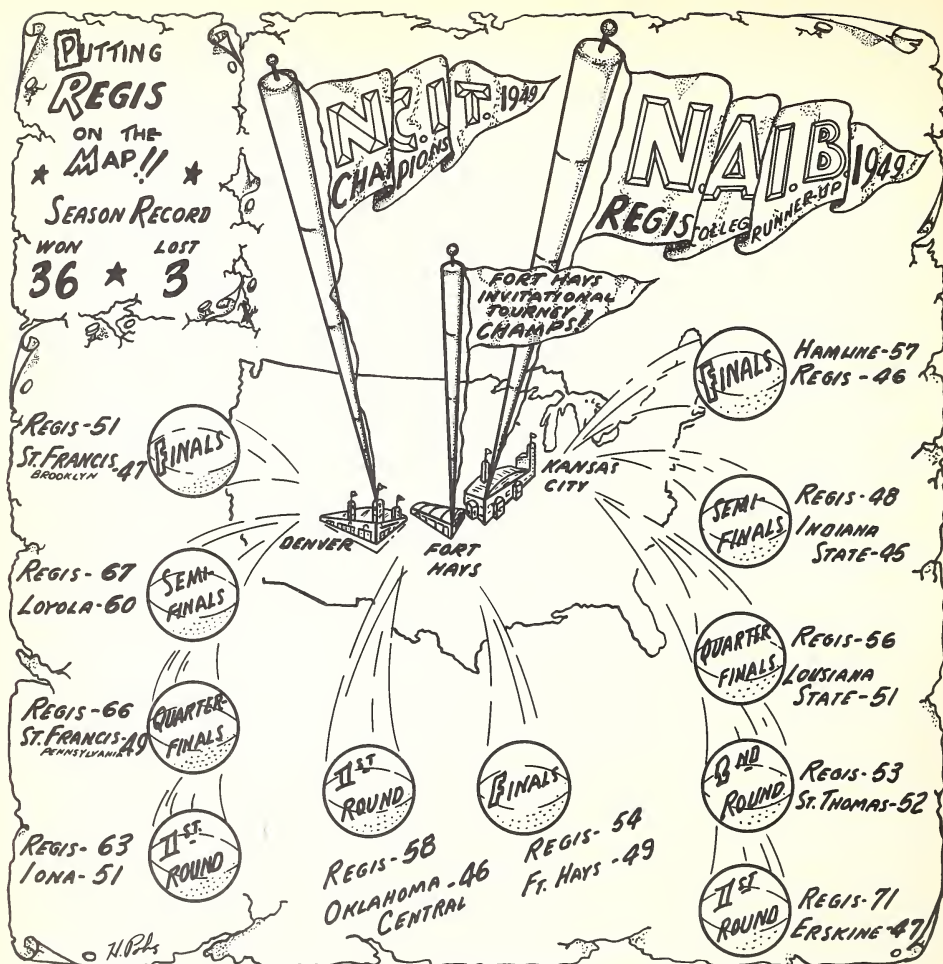 PUTTING
REGIS
ON THE
MAP!!
SEASON RECORD
WON LOST
36 ★ 3
N.C.I.T. 1949
CHAMPIONS
N.A.I.B. 1949
REGIS COLLEG RUNNER-UP
FORT HAYS
INVITATIONAL
TOURNEY
CHAMPS!
DENVER
FORT
HAYS
KANSAS
CITY
REGIS-51
ST. FRANCIS-47
BROOKLYN
FINALS
REGIS-67
LOYOLA-60
SEMI-
FINALS
REGIS-66
ST. FRANCIS-49
PENNSYLVANIA
QUARTER-
FINALS
REGIS-63
IONA-51
1ST.
ROUND
1ST
ROUND
REGIS-58
OKLAHOMA-46
CENTRAL
FINALS
REGIS-54
FT. HAYS-49
FINALS
HAMLINE-57
REGIS-46
SEMI-
FINALS
REGIS-48
INDIANA
STATE-45
QUARTER
FINALS
REGIS-56
LOUSIANA
STATE-51
2ND
ROUND
REGIS-53
ST. THOMAS-52
1ST
ROUND
REGIS-71
ERSKINE-47